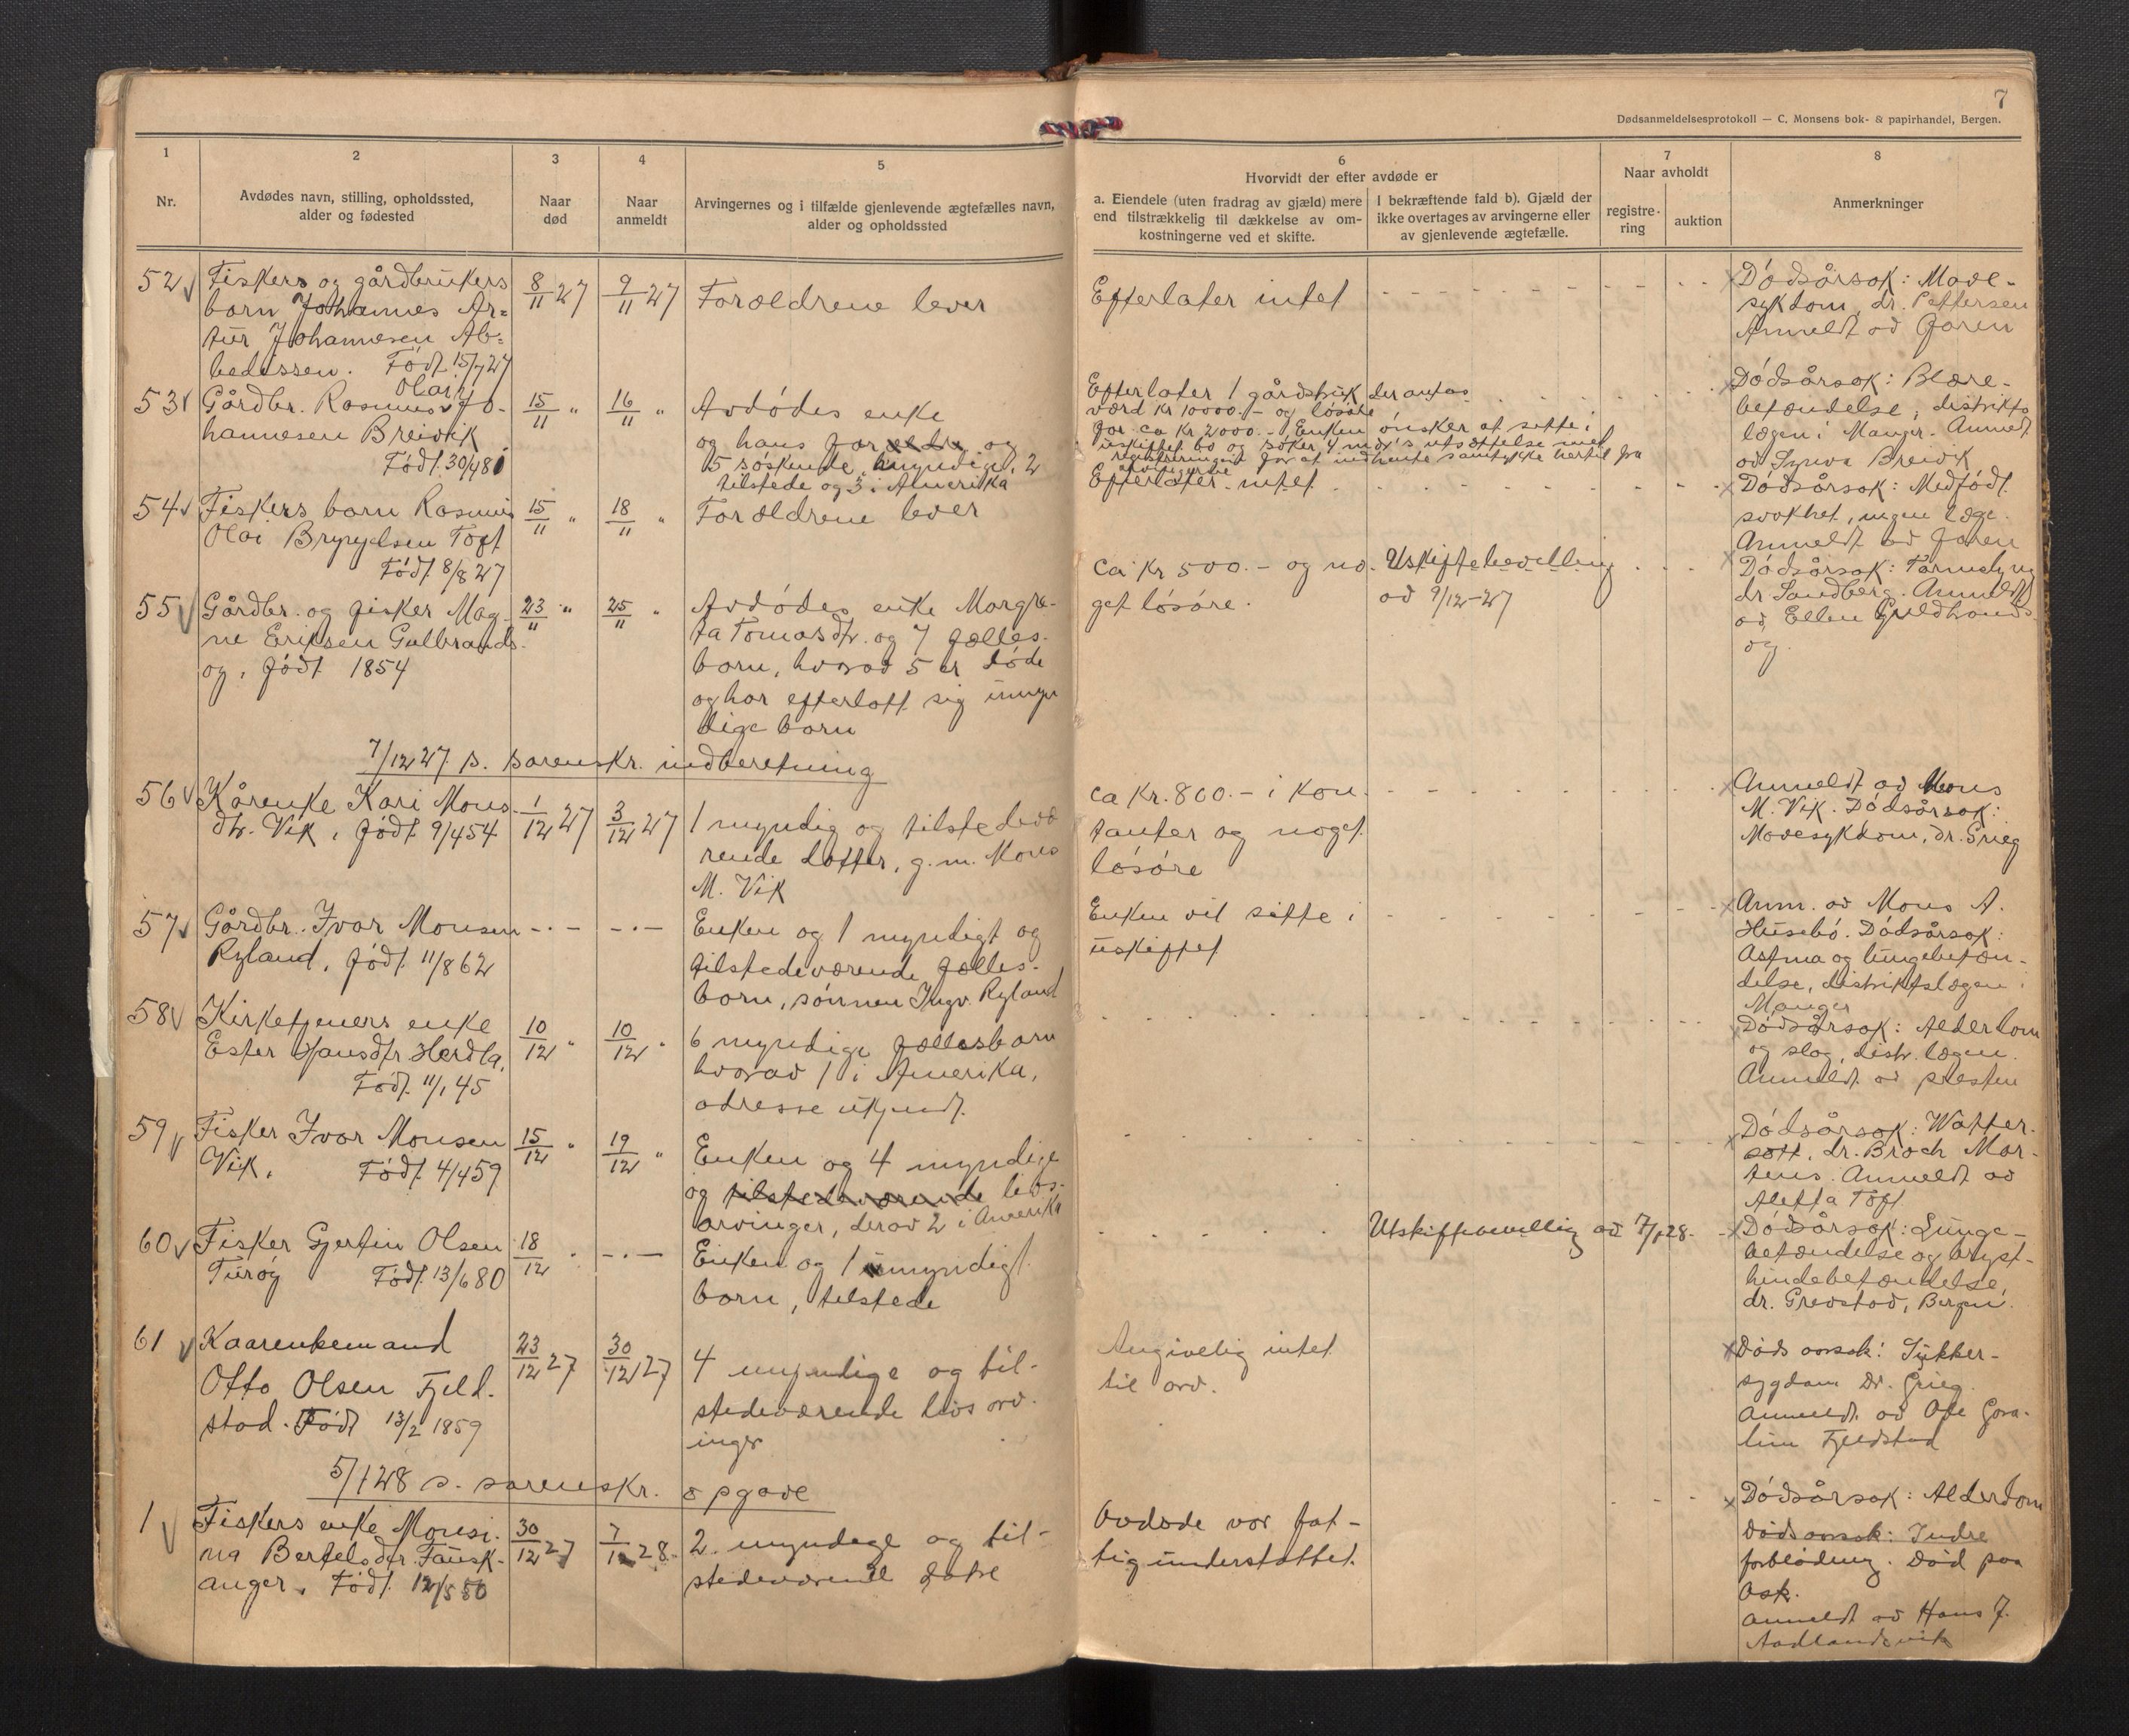 7
Dødsanmeldelsesprotokoll — C. Monsens bok- & papirhandel, Bergen.
1
Nr.
2
Avdødes navn, stilling, opholdssted,
alder og fødested
3
Naar
død
4
Naar
anmeldt
5
Arvingernes og i tilfælde gjenlevende ægtefælles navn,
alder og opholdssted
6
Hvorvidt der efter avdøde er
a. Eiendele (uten fradrag av gjæld) mere
end tilstrækkelig til dækkelse av om-
kostningerne ved et skifte.
I bekræftende fald b). Gjæld der
ikke overtages av arvingerne eller
av gjenlevende ægtefælle.
7
Naar avholdt
registre-
ring
auktion
8
Anmerkninger
52
Fiskers og gårdbrukers
barn Johannes Ar=
tur Johannesen Ab=
bedissen. Født 15/7 27
8/11 27
9/11 27
Forældrene lever
Efterlater intet
Dødsårsak: Mave-
sykdom, dr. Pettersen
Anmeldt av faren
53
Olai
Gårdbr. Rasmus Jo-
hannesen Breivik
Født 30/4 81
15/11 "
16/11 "
Avdødes enke
og hans forældre og
5 søskende, myndige, 2
tilstede og 3 i Amerika
Efterlater 1 gårdsbruk der antas
værd kr 10000.- og løsøre
for ca kr 2000.- Enken ønsker at sitte i
uskiftet bo og søker 4 mdr's utsættelse med
registreringen for at indhente samtykke hertil fra
arvingerne
Dødsårsak: Blære-
betændelse, distrikts
lægen i Manger. Anmeldt
av Synva Breivik
54
Fiskers barn Rasmus
Olai Brynjelsen Toft
Født 8/8 27
15/11 "
18/11 "
Forældrene lever
Efterlater intet
Dødsårsak: Medfødt
svakhet, ingen læge.
Anmeldt av faren
55
Gårdbr. og fisker Mag-
ne Eriksen Gulbrands-
øy, født 1854
23/11 "
25/11 "
Avdødes enke Margre-
ta Tomasdtr. og 7 fælles-
barn, hvorav 5 er døde
og har efterlatt sig umyn
dige barn
ca kr 500.- og no-
get løsøre.
Uskiftebevilling
av 9/12-27
Dødsårsak: Tarmslyng
dr Sandberg. Anmeldt
av Ellen Guldbrands-
øy.
7/12 27 s. sorenskr. indberetning
56
Kårenke Kari Mons-
dtr. Vik, født 9/4 54
1/12 27
3/12 27
1 myndig og tilstedevæ
rende datter, g. m. Mons
M. Vik
ca kr. 800.- i kon-
tanter og noget
løsøre
Anmeldt av Mons
M. Vik. Dødsårsak:
Mavesykdom, dr. Grieg
57
Gårdbr. Ivar Monsen
Ryland, født 11/8 62
-.-
-.-
Enken og 1 myndigt og
tilstedeværende fælles-
barn, sønnen Ingv. Ryland
Enken vil sitte i
uskiftet
Anm. av Mons A.
Husebø. Dødsårsak:
Astma og lungebetæn-
delse, distriktslægen i
Manger
58
Kirketjeners enke
Ester Hansdtr Herdla,
Født 11/1 45
10/12 "
10/12 "
6 myndige fællesbarn
hvorav 1 i Amerika,
adresse ukjendt.
Dødsårsak: Alderdom
og slag, distr. lægen.
Anmeldt av presten
59
Fisker Ivar Monsen
Vik, Født 4/4 59
15/12 "
19/12 "
Enken og 4 myndige
og tilstedeværende livs-
arvinger, derav 2 i Amerika
Dødsårsak:Ватter-
sott, dr. Broch Mar-
tens. Anmeldt av
Aletta Toft
60
Fisker Gjertin Olsen
Turøy Født 13/6 80
18/12
-.-
Enken og 1 umyndigt
barn, tilstede
Utskiftebevillig av 7/1 28
Dødsårsak: Lunge-
betændelse og bryst-
hindebetændelse,
dr. Grevstad, Bergen.
61
Kaarenkemand
Otto Olsen Fjeld-
stad. Født 13/2 1859
23/12 27
30/12 27
4 myndige og til-
stedeværende livsarv-
inger
Angivelig intet
til arv.
Døds aarsak: Sukker-
sygdom Dr. Grieg
anmeldt av Ole
Fjeldstad
5/1 28 s. sorenskr. opgave
1
Fiskers enke Monsi-
na Bertelsdtr. Fausk-
anger. Født 12/5 50
30/12 27
7/1 28
2 myndige og til-
stedeværende døtre
Avdøde var fat-
tigunderstøttet.
Dødsårsak: Alderdom
Dødsaarsak: Indre
forblødning. Død paa
Ask.
anmeldt av Hans J.
Aadlandsvik